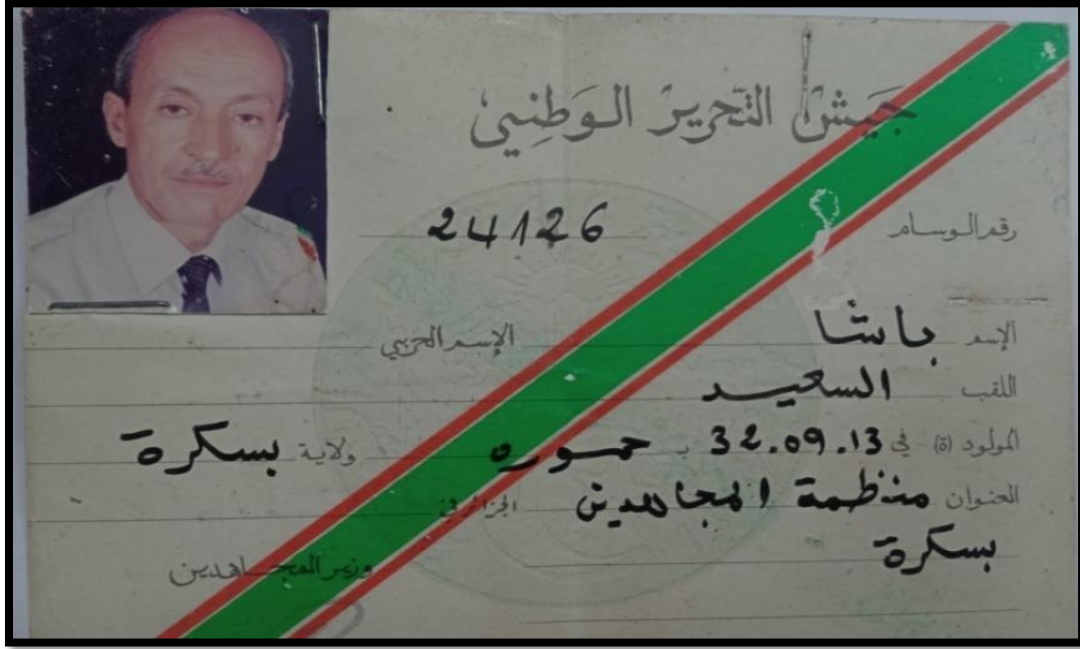 جَيشْ التّحريرْ الوَطِني
رقم الوسام 24126
الإسم باشا الإسم الحربي
اللقب السعيد
المولود (ة) في 32.09.13 بـ حمــوره ولاية بسكرة
العنوان منظمة المجاهدين الجزائر في
بسكرة
وزير المجاهدين